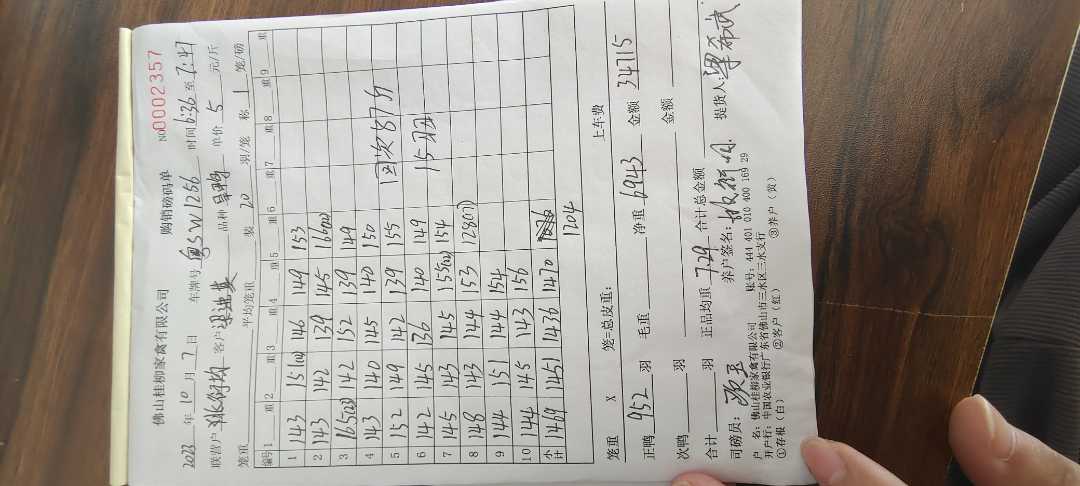 佛山桂柳家禽有限公司 购销磅码单 No 0002357
2023 年 10 月 7 日 车牌号 粤SW1256 时间 6:36 至 7:41
联营户 客户 品种 单价 5 元/斤
笼重 平均笼重 装 20 羽/笼 称 1 笼/磅
编号 1 重 2 重 3 重 4 重 5 重 6 重 7 重 8 重 9 重
1 143 151 146 149 153
2 143 142 139 145 166
3 165 142 152 139 149
4 143 140 145 140 150
5 152 149 142 139 155
6 142 145 136 140 149
7 145 143 145 155 154
8 148 143 144 153 128(17)
9 144 151 144 154
10 144 145 143 156
小计 1469 1451 1436 1470 1204
笼重 X 笼=总皮重: 上车费
正鸭 952 羽 毛重 净重 6943 金额 34715
次鸭 羽 金额
合计 羽 正品均重 7.29 合计总金额
司磅员: 养户签名: 提货人:
户 名: 佛山桂柳家禽有限公司 账号: 444 401 010 400 169 29
开户行: 中国农业银行广东省佛山市三水区三水支行
①存根（白） ②客户（红） ③养户（黄）